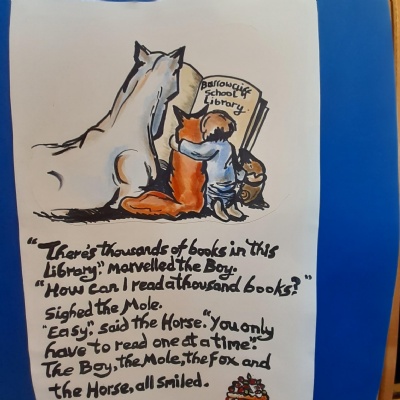 Barrowcliff
School
Library.
"There's thousands of books in this
Library," marvelled the Boy.
"How can I read a thousand books?"
Sighed the Mole.
"Easy", said the Horse. "You only
have to read one at a time".
The Boy, the Mole, the Fox and
the Horse, all smiled.